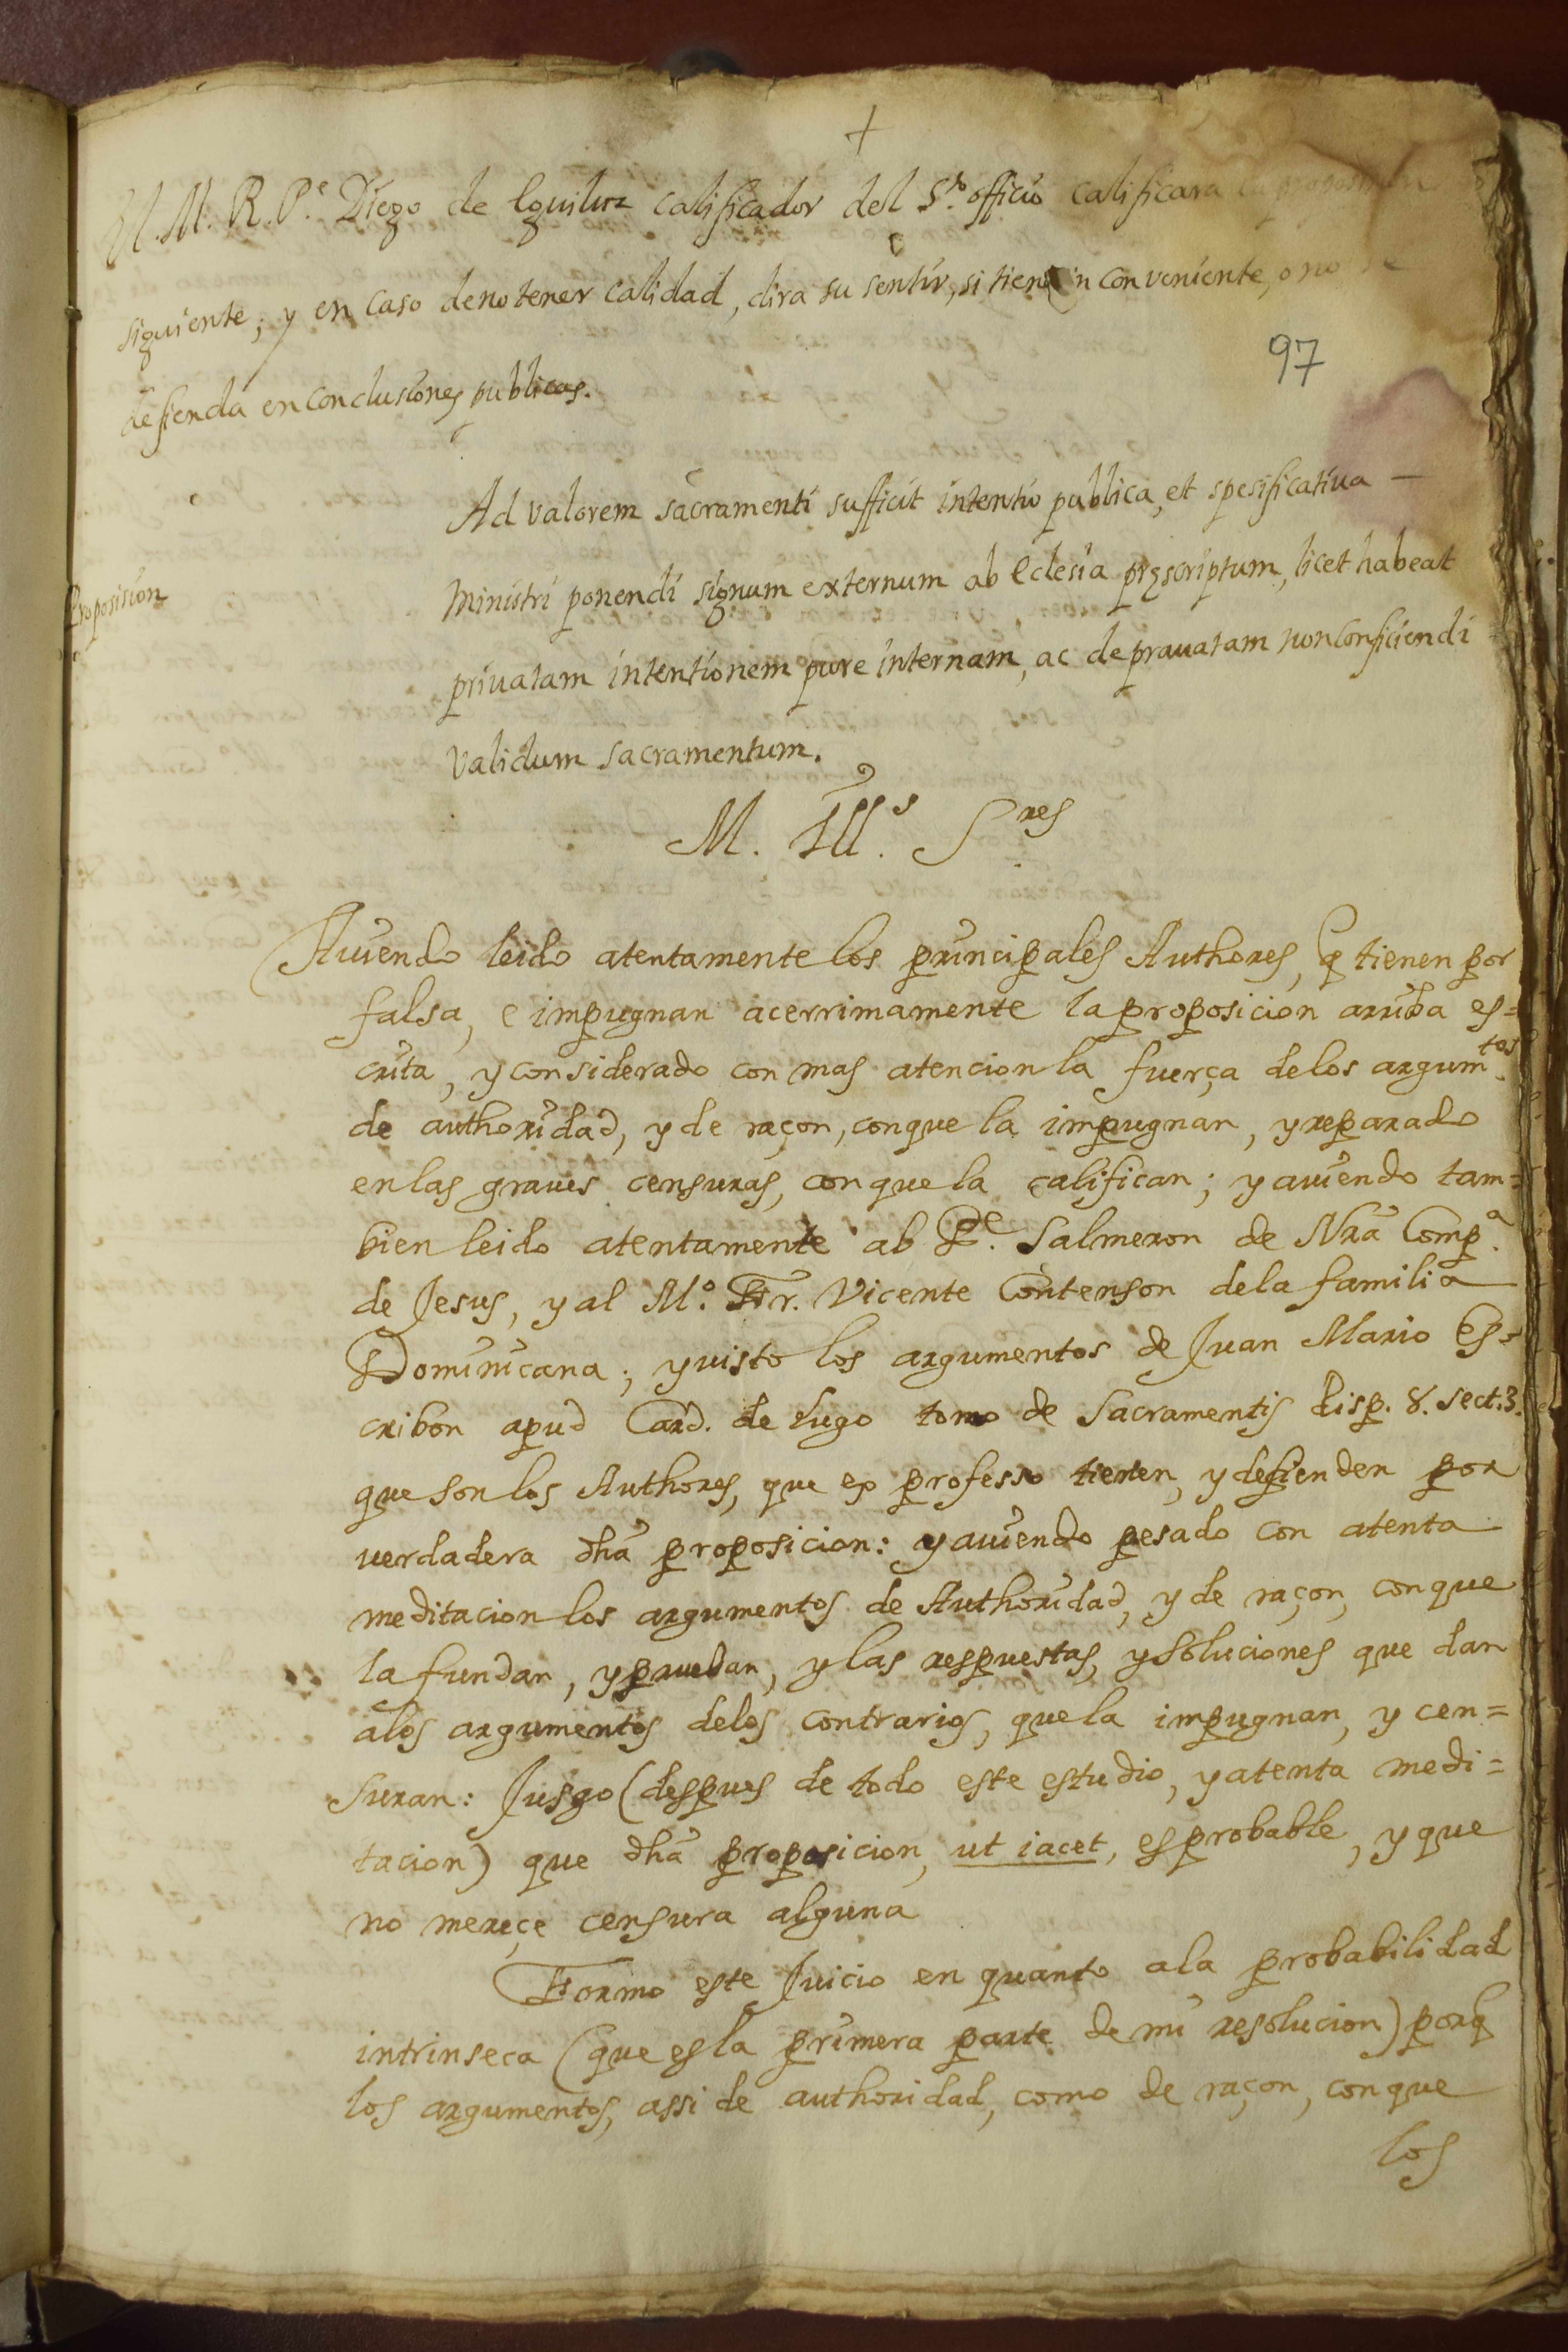 +
El. M. R. P.e Diego de Eguiluz calificador del S.to officio calificara la proposision
siguiente; y en caso de no tener calidad, dira su sentir, si tiene inconveniente, o no se
97
defienda en conclusiones publicas.
Ad valorem sacramenti sufficit intentio publica, et spesificatiua —
Proposision
Ministri ponendi signum externum ab Eclesia pręscriptum, licet habeat
priuatam intentionem pure internam, ac deprauatam non conficiendi
validum sacramentum.
M. Ill.s S.res
Auiendo leido atentamente los principales Authores, q tienen por
falsa, e impugnan acerrimamente la proposicion arriba es=
crita, y considerado con mas atencion la fuerça de los argum.tos
de authoridad, y de raçon, con que la impugnan, y reparado
en las graues censuras, con que la califican; y auiendo tam=
bien leido atentamente al P.e Salmeron de Nra Comp.a
de Jesus, y al M.o Fr. Vicente Contenson de la familia
Dominicana; y visto los argumentos de Juan Mario Es=
cribon apud Card. de Lugo tomo de Sacramentis disp. 8. sect. 3.
que son los Authores, que ex professo tienen, y defienden por
verdadera dha proposicion: y auiendo pesado con atenta
meditacion los argumentos de Authoridad, y de raçon, con que
la fundan, y prueban, y las respuestas, y soluciones que dan
a los argumentos de los contrarios, que la impugnan, y cen=
suran: Jusgo (despues de todo este estudio, y atenta medi=
tacion) que dha proposicion, ut iacet, es probable, y que
no mereçe censura alguna
Formo este Juicio en quanto a la probabilidad
intrinseca (que es la primera parte de mi resolucion) porq
los argumentos, assi de authoridad, como de raçon, con que
los